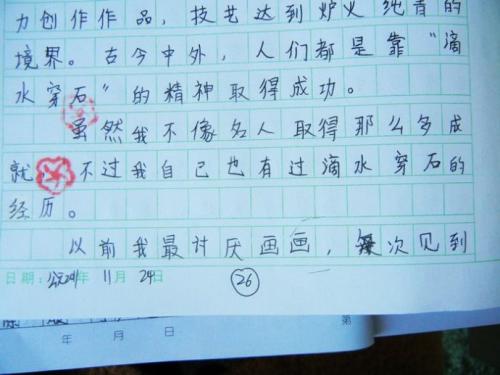 力创作作品，技艺达到炉火纯青的
境界。古今中外，人们都是靠“滴
水穿石”的精神取得成功。
虽然我不像名人取得那么多成
就，不过我自己也有过滴水穿石的
经历。
以前我最讨厌画画，每次见到
日期： 年 11月 24日
26
第
年 月 日